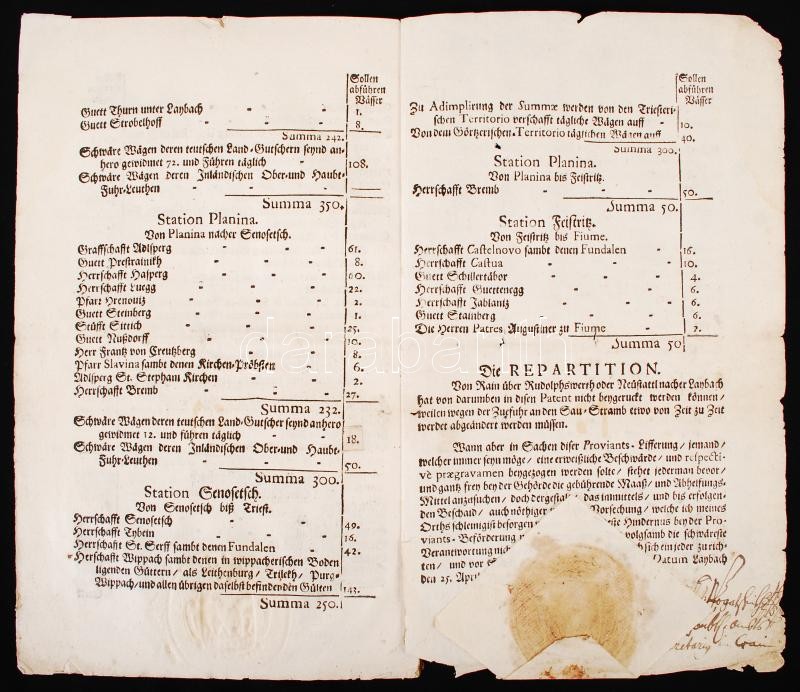 Sollen
abführen
Vässer
Guett Thurn unter Laybach - - 1.
Guett Strobelhoff - - 8.
Summa 242.
Schwäre Wägen deren teutschen Land-Gutschern seynd an-
hero gewidmet 72. und führen täglich - 108.
Schwäre Wägen deren Inländischen Ober-und Haubt-
Fuhr-Leuthen - -
Summa 350.
Station Planina.
Von Planina nacher Senosetsch.
Graffschafft Adlsperg - - 61.
Guett Prestrainikh - - 8.
Herrschafft Hasperg - - 60.
Herrschafft Luegg - - 22.
Pfarr Hrenouitz - - 2.
Guett Steinberg - - 1.
Stüfft Sittich - - 25.
Guett Nußdorff - - 10.
Herr Frantz von Creutzberg - - 8.
Pfarr Slavina sambt denen Kirchen-Pröbsten - 6.
Adlsperg St. Stephani Kirchen - - 2.
Herrschafft Bremb - - 27.
Summa 232.
Schwäre Wägen deren teutschen Land-Gutscher seynd anhero
gewidmet 12. und führen täglich - - 18.
Schwäre Wägen deren Inländischen Ober-und Haubt-
Fuhr-Leuthen - - 50.
Summa 300.
Station Senosetsch.
Von Senosetsch biß Triest.
Herrschafft Senosetsch - - 49.
Herrschafft Tybein - - 16.
Herrschafft St. Serff sambt denen Fundalen - 42.
Herschafft Wippach sambt denen in wippacherischen Boden
ligenden Güttern / als Leithenburg / Trilekh / Purg-
Wippach / und allen übrigen daselbst befindenden Gülten 143.
Summa 250.
Sollen
abführen
Vässer
Zu Adimplirung der Summæ werden von den Triesteri-
schen Territorio verschafft tägliche Wägen auff - 10.
Von dem Görtzerischen-Territorio täglichen Wägen auff 40.
Summa 300.
Station Planina.
Von Planina bis Feistritz.
Herrschafft Bremb - - 50.
Summa 50.
Station Feistritz.
Von Feistritz bis Fiume.
Herrschafft Castelnovo sambt denen Fundalen - 16.
Herrschafft Castua - - 10.
Guett Schillertabor - - 4.
Herrschafft Guettenegg - - 6.
Herrschafft Jablantz - - 6.
Guett Stainberg - - 6.
Die Herren Patres Augustiner zu Fiume - 2.
Summa 50
Die REPARTITION.
Von Rain über Rudolphswerth oder Neüstattl nacher Laybach
hat von darumben in disen Patent nicht beygeruckt werden können /
weilen wegen der Zufuhr an den Sau-Stramb etwo von Zeit zu Zeit
werdet abgeändert werden müssen.
Wann aber in Sachen diser Proviants-Lifferung / jemand /
welcher immer seyn möge / eine erweißliche Beschwärde / und respecti-
vè prægravamen beygezogen werden solte / stehet jederman bevor /
und gantz frey bey der Gehörde die gebührende Maaß / und Abhelfungs-
Mittel anzusuchen / doch dergestalt / das immittels / und bis erfolgen-
den Beschaid / auch nöthiger Vorsechung / welche ich meines
Orths schleimigist besorgen ste Hindernus bey der Pro-
viants-Beförderung volgsamb die schwäreste
Verantwortung nich ch sich ein jeder zurich-
ten / und vor S Datum Laybach
den 25. April